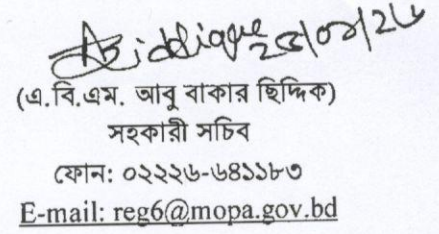 Siddique
(এ.বি.এম. আবু বাকার ছিদ্দিক)
সহকারী সচিব
ফোন: ০২২২৬-৬৪১১৮৩
E-mail: reg6@mopa.gov.bd